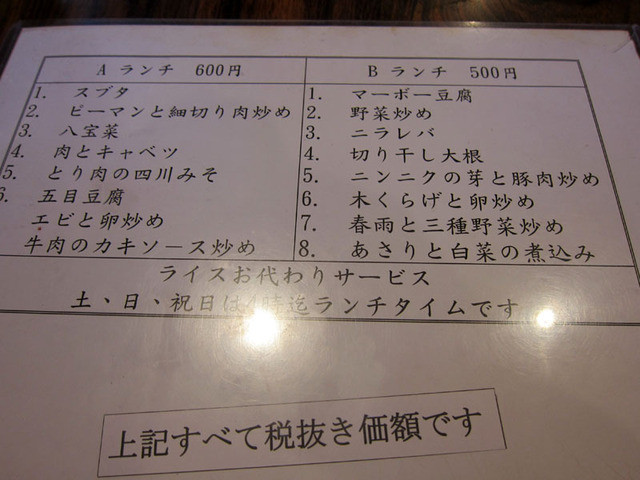 A ランチ 600円
1. スブタ
2. ピーマンと細切り肉炒め
3. 八宝菜
4. 肉とキャベツ
5. とり肉の四川みそ
6. 五目豆腐
エビと卵炒め
牛肉のカキソース炒め
B ランチ 500円
1. マーボー豆腐
2. 野菜炒め
3. ニラレバ
4. 切り干し大根
5. ニンニクの芽と豚肉炒め
6. 木くらげと卵炒め
7. 春雨と三種野菜炒め
8. あさりと白菜の煮込み
ライスお代わりサービス
土、日、祝日は4時迄ランチタイムです
上記すべて税抜き価額です